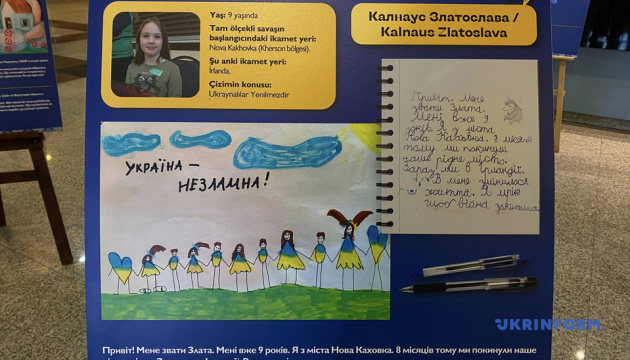 Yaş: 9 yaşında
Tam ölçekli savaşın
başlangıcındaki ikamet yeri:
Nova Kakhovka (Kherson bölgesi).
Şu anki ikamet yeri:
İrlanda.
Çizimin konusu:
Ukraynalılar Yenilmezdir
Калнаус Златослава /
Kalnaus Zlatoslava
УКРАЇНА –
НЕЗЛАМНА!
Привіт. Мене
звати Злата.
Мені вже 9
років. Я з міста
Нова Каховка. 8 місяців
тому ми покинули
наше рідне місто.
Зараз ми в Ірландії.
В мене змінилося
життя. Я мрію
щоб війна закінчилась
Привіт! Мене звати Злата. Мені вже 9 років. Я з міста Нова Каховка. 8 місяців тому ми покинули наше
UKRINFORM